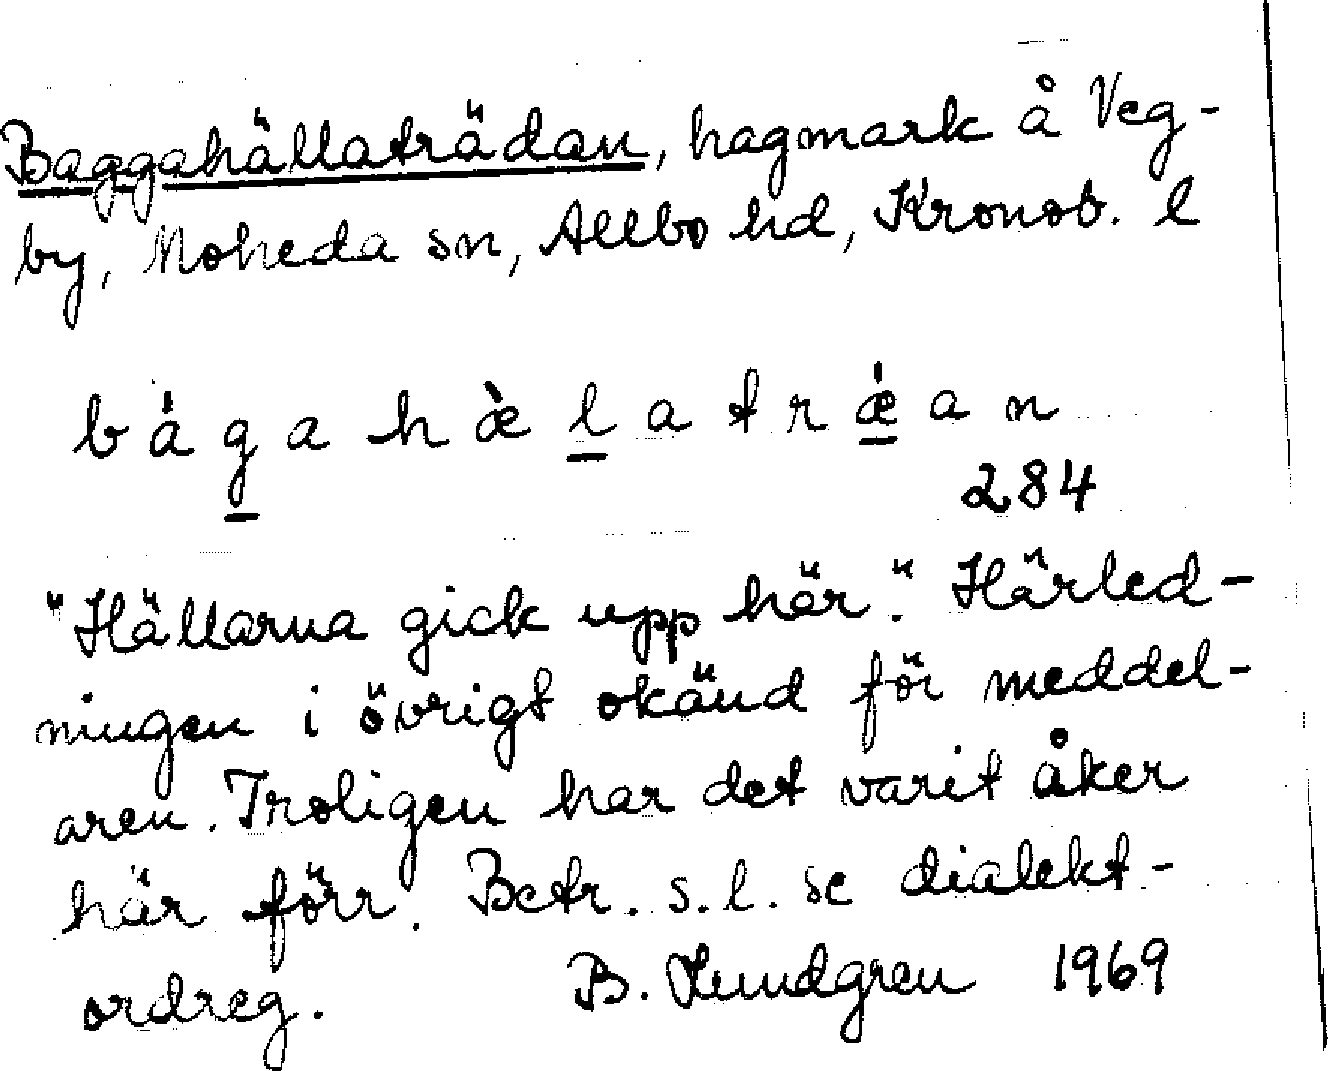 Baggahällaträdan, hagmark å Veg-
by, Moheda sn, Allbo hd, Kronob. l
b á g a h æ̀ l a t r ǽ a n
284
"Hällarna gick upp här". Härled-
ningen i övrigt okänd för meddel-
aren. Troligen har det varit åker
här förr. Betr. s.l. se dialekt-
ordreg. B. Lundgren 1969